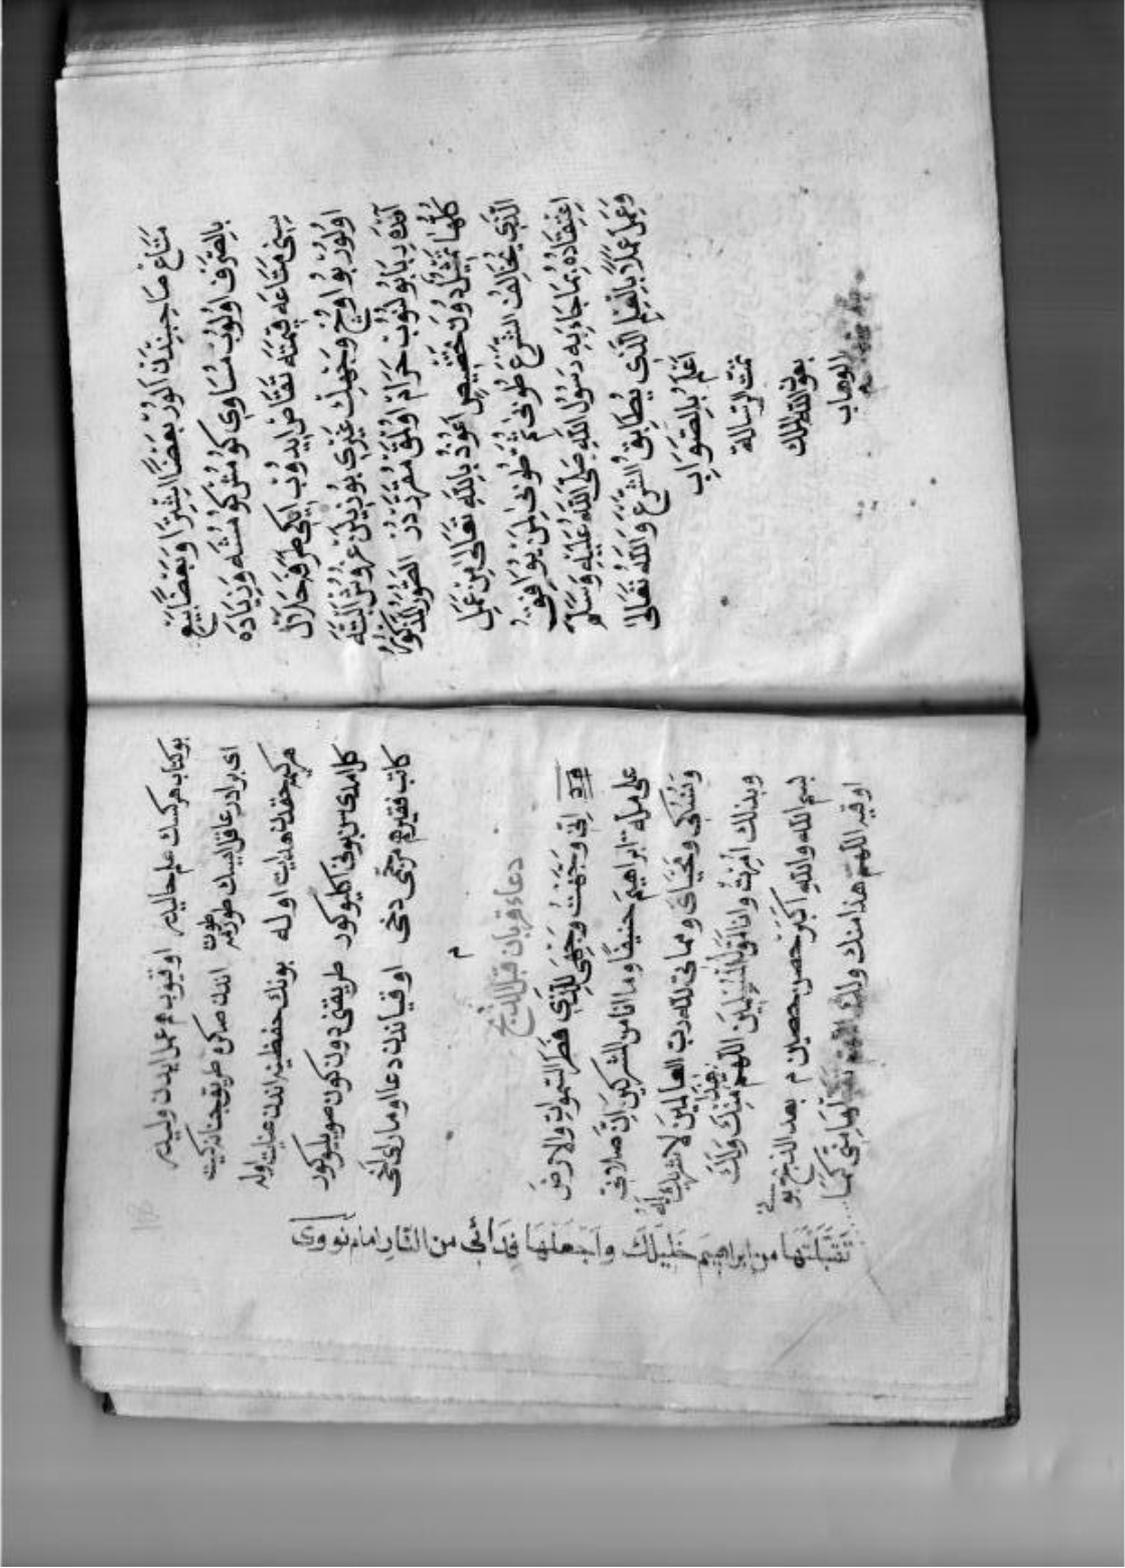 مَتَاعْ صَاحِبِنْدَنْ كُورُ بَعْضًا شِرَا وَ بَعْضًا بَيْعِ
بِالصَّرْفْ اُولُوبْ مُسَاوِي كُومُشْ كُومُشَه وَزِيَادَه
سِنِي مَتَاعَه قِيمَتْلَه تَقَاصْ اِيدُوبْ اِيكِي طَرَفَه حَلَالْ
اُولُورْ بُو اُوجْ وَجْهِكْ غَيْرِي بُوزِيلَنْ غُرُوشْ اَلْتِنَه
اَلِنْدِه رِبَا بُولُنُوبْ حَرَامْ اُولْمَقْ مُقَرَّرْدُرْ الصُّوَرُ الْمَذْكُورَةُ
كُلُّهَا تَمْثِيلٌ دُونَ تَخْصِيصٍ اَعُوذُ بِاللّٰهِ تَعَالٰى مِنْ عَمَلِ
الَّذِي يُخَالِفُ الشَّرْعَ طُوبٰى ثُمَّ طُوبٰى لِمَنْ يُوَافِقُ
اِعْتِقَادُهُ بِمَا جَاءَ بِهِ رَسُولُ اللّٰهِ صَلَّى اللّٰهُ عَلَيْهِ وَسَلَّمَ
وَعَمِلَ عَمَلًا بِالْعِلْمِ الَّذِي يُطَابِقُ الشَّرْعَ وَاللّٰهُ تَعَالٰى
اَعْلَمُ بِالصَّوَابِ
تمت الرسالة
بعون الله الملك
الوهاب
م
بوكتاب هركسك علم حاليدر اوقيوب هم عمل ايدن وليدر
اى برادر عاقل ايسك طورمه طوت اندن صكره طريق جنانه كيت
هر كيمه حقدن هدايت اوله بونك حفظينه اندن عنايت اوله
كل امدى سن بونى اكليوكور طريقنى دون كون صويليوكور
كاتب فقيرهم مرتجى دخى اوقياندن دعا اومارلر اخى
م
دعاء قربان قبل الذبح
انى وَجَّهْتُ وَجْهِىَ لِلَّذِي فَطَرَ السَّمٰوَاتِ وَالاَرْضَ
على ملة ابراهيم حنيفًا وما انا من المشركين اِنَّ صلاتى
وَنُسُكى ومَحْيَاىَ ومماتى لله ربّ العالمين لا شريك لَهُ
وبذلك اُمِرْتُ وانا اَوَّلُ المُسْلِمِينَ اللهم هذا مِنْكَ وَلَكَ
بسم الله والله اكبر حصن حصين م بعد الذبح بو
اوقيه اللّٰهُمّ هذا منك ولك اللهم تقبلها مِنّى كَمَا
تَقَبَّلْتَهَا من ابراهيم خليلك واجْعَلْهَا فدائى من النّار امام نووى